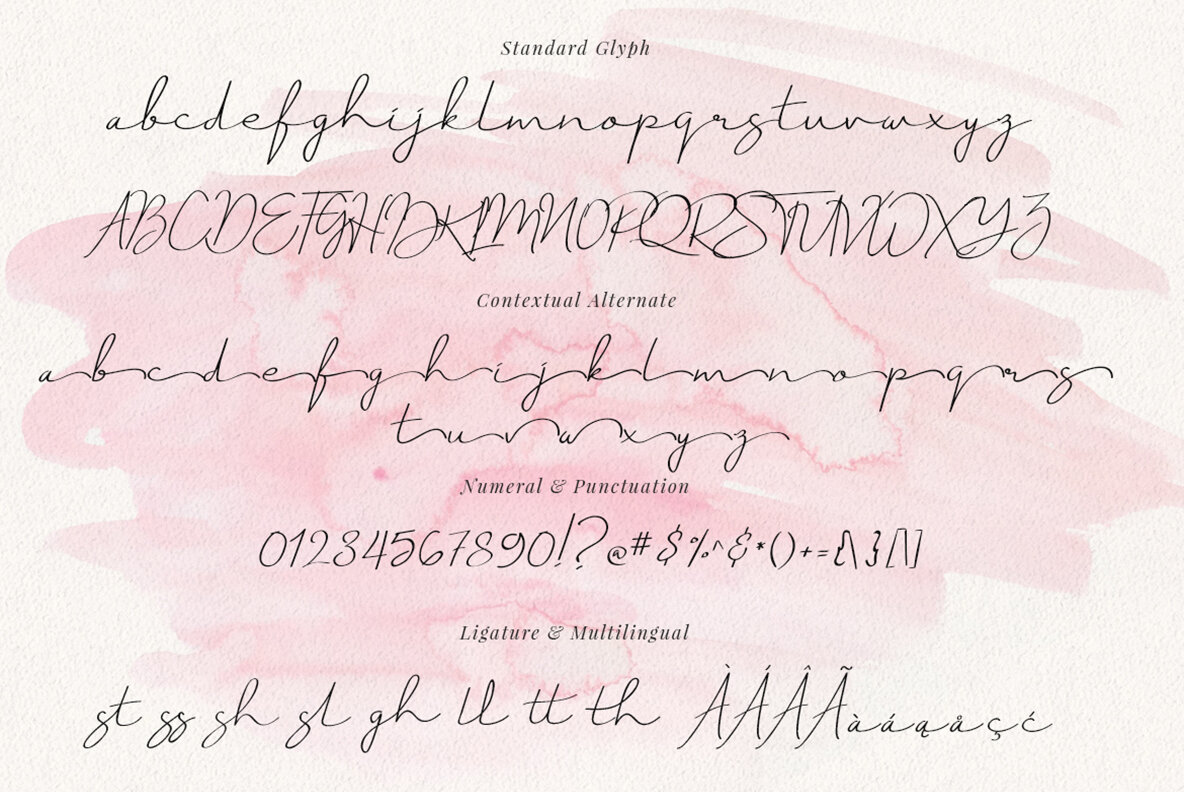 Standard Glyph
abcdefghijklmnopqrstuvwxyz
ABCDEFGHIJKLMNOPQRSTUVWXYZ
Contextual Alternate
abcdefghijklmnopqrs
tuvwxyz
Numeral & Punctuation
01234567890!?@#$%^&*()+={|\}[|\]
Ligature & Multilingual
st ss sh sl gh ll tt th ÀÁÂÃàáąåçć